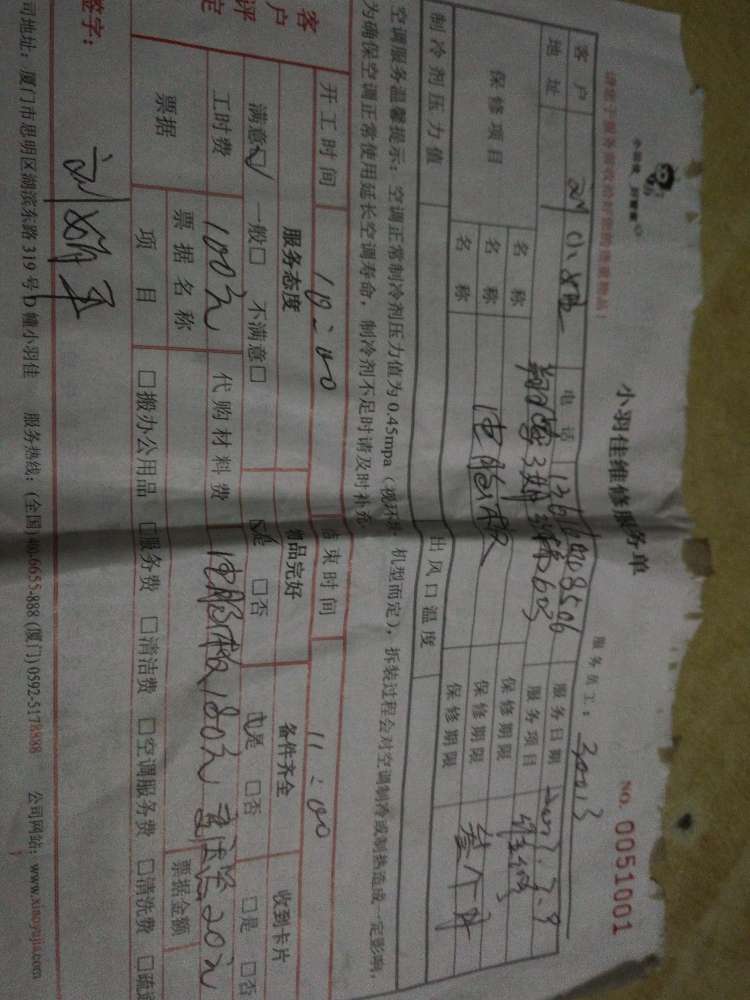 小羽佳 好管家
小羽佳维修服务单
NO. 0051001
服务员工：30013
客户 电话 服务日期
地址 服务项目
保修项目 名称 保修期限
名称 电脑板 保修期限 叁个月
名称 保修期限
制冷剂压力值 出风口温度
空调服务温馨提示：空调正常制冷剂压力值为0.45mpa（视环境、机型而定），拆装过程会对空调制冷或制热造成一定影响，
为确保空调正常使用延长空调寿命，制冷剂不足时请及时补充
开工时间 10:00 结束时间 11:00
客户评定 服务态度 物品完好 备件齐全 收到卡片
满意☑ 一般□ 不满意□ ☑是 □否 ☑是 □否 □是 □否
工时费 100元 代购材料费 电脑板180元 20元
票据 票据名称 票据金额
项目 □搬办公用品 □服务费 □清洁费 □空调服务费 □清洗费
签字：
司地址：厦门市思明区湖滨东路319号D幢小羽佳 服务热线：(全国)40-6655-888 (厦门)0592-5178888 公司网站：www.xiaoyujia.com